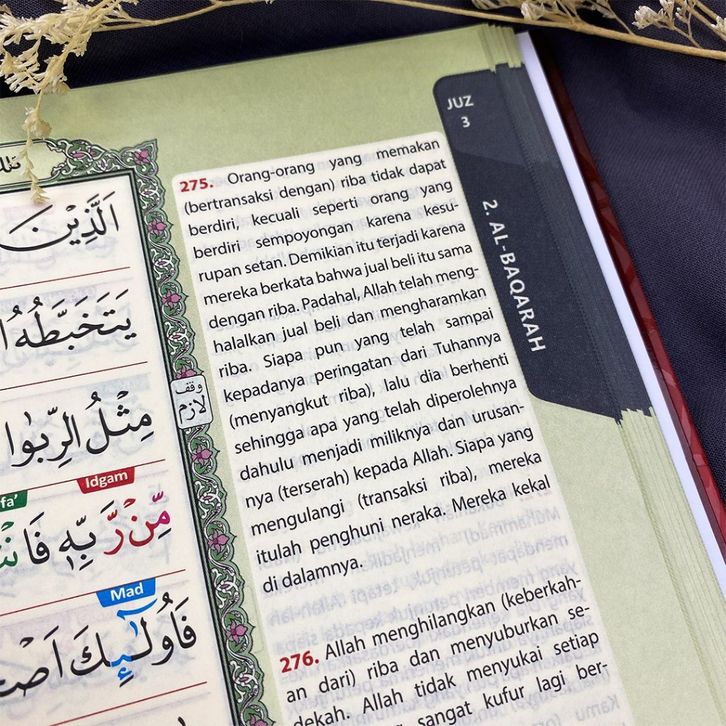 JUZ
3
2. AL-BAQARAH
275. Orang-orang yang memakan
(bertransaksi dengan) riba tidak dapat
berdiri, kecuali seperti orang yang
berdiri sempoyongan karena kesu-
rupan setan. Demikian itu terjadi karena
mereka berkata bahwa jual beli itu sama
dengan riba. Padahal, Allah telah meng-
halalkan jual beli dan mengharamkan
riba. Siapa pun yang telah sampai
kepadanya peringatan dari Tuhannya
(menyangkut riba), lalu dia berhenti
sehingga apa yang telah diperolehnya
dahulu menjadi miliknya dan urusan-
nya (terserah) kepada Allah. Siapa yang
mengulangi (transaksi riba), mereka
itulah penghuni neraka. Mereka kekal
di dalamnya.
276. Allah menghilangkan (keberkah-
an dari) riba dan menyuburkan se-
dekah. Allah tidak menyukai setiap
sangat kufur lagi ber-
اَلَّذِيْنَ
يَتَخَبَّطُهُ
وقف لازم
مِثْلُ الرِّبٰوا
Idgam
fa'
مِّنْ رَّبِّهٖ فَا
Mad
فَاُولٰۤىِٕكَ